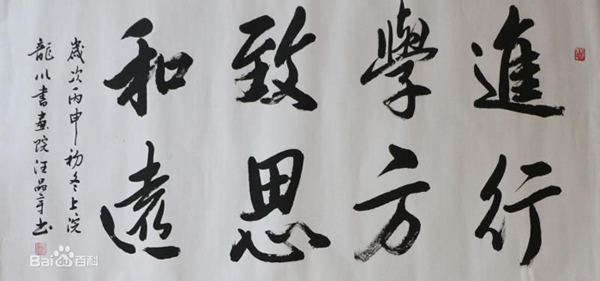 進學致和
行方思遠
歲次丙申初冬上浣
龍川書畫院汪品书
Bai百科